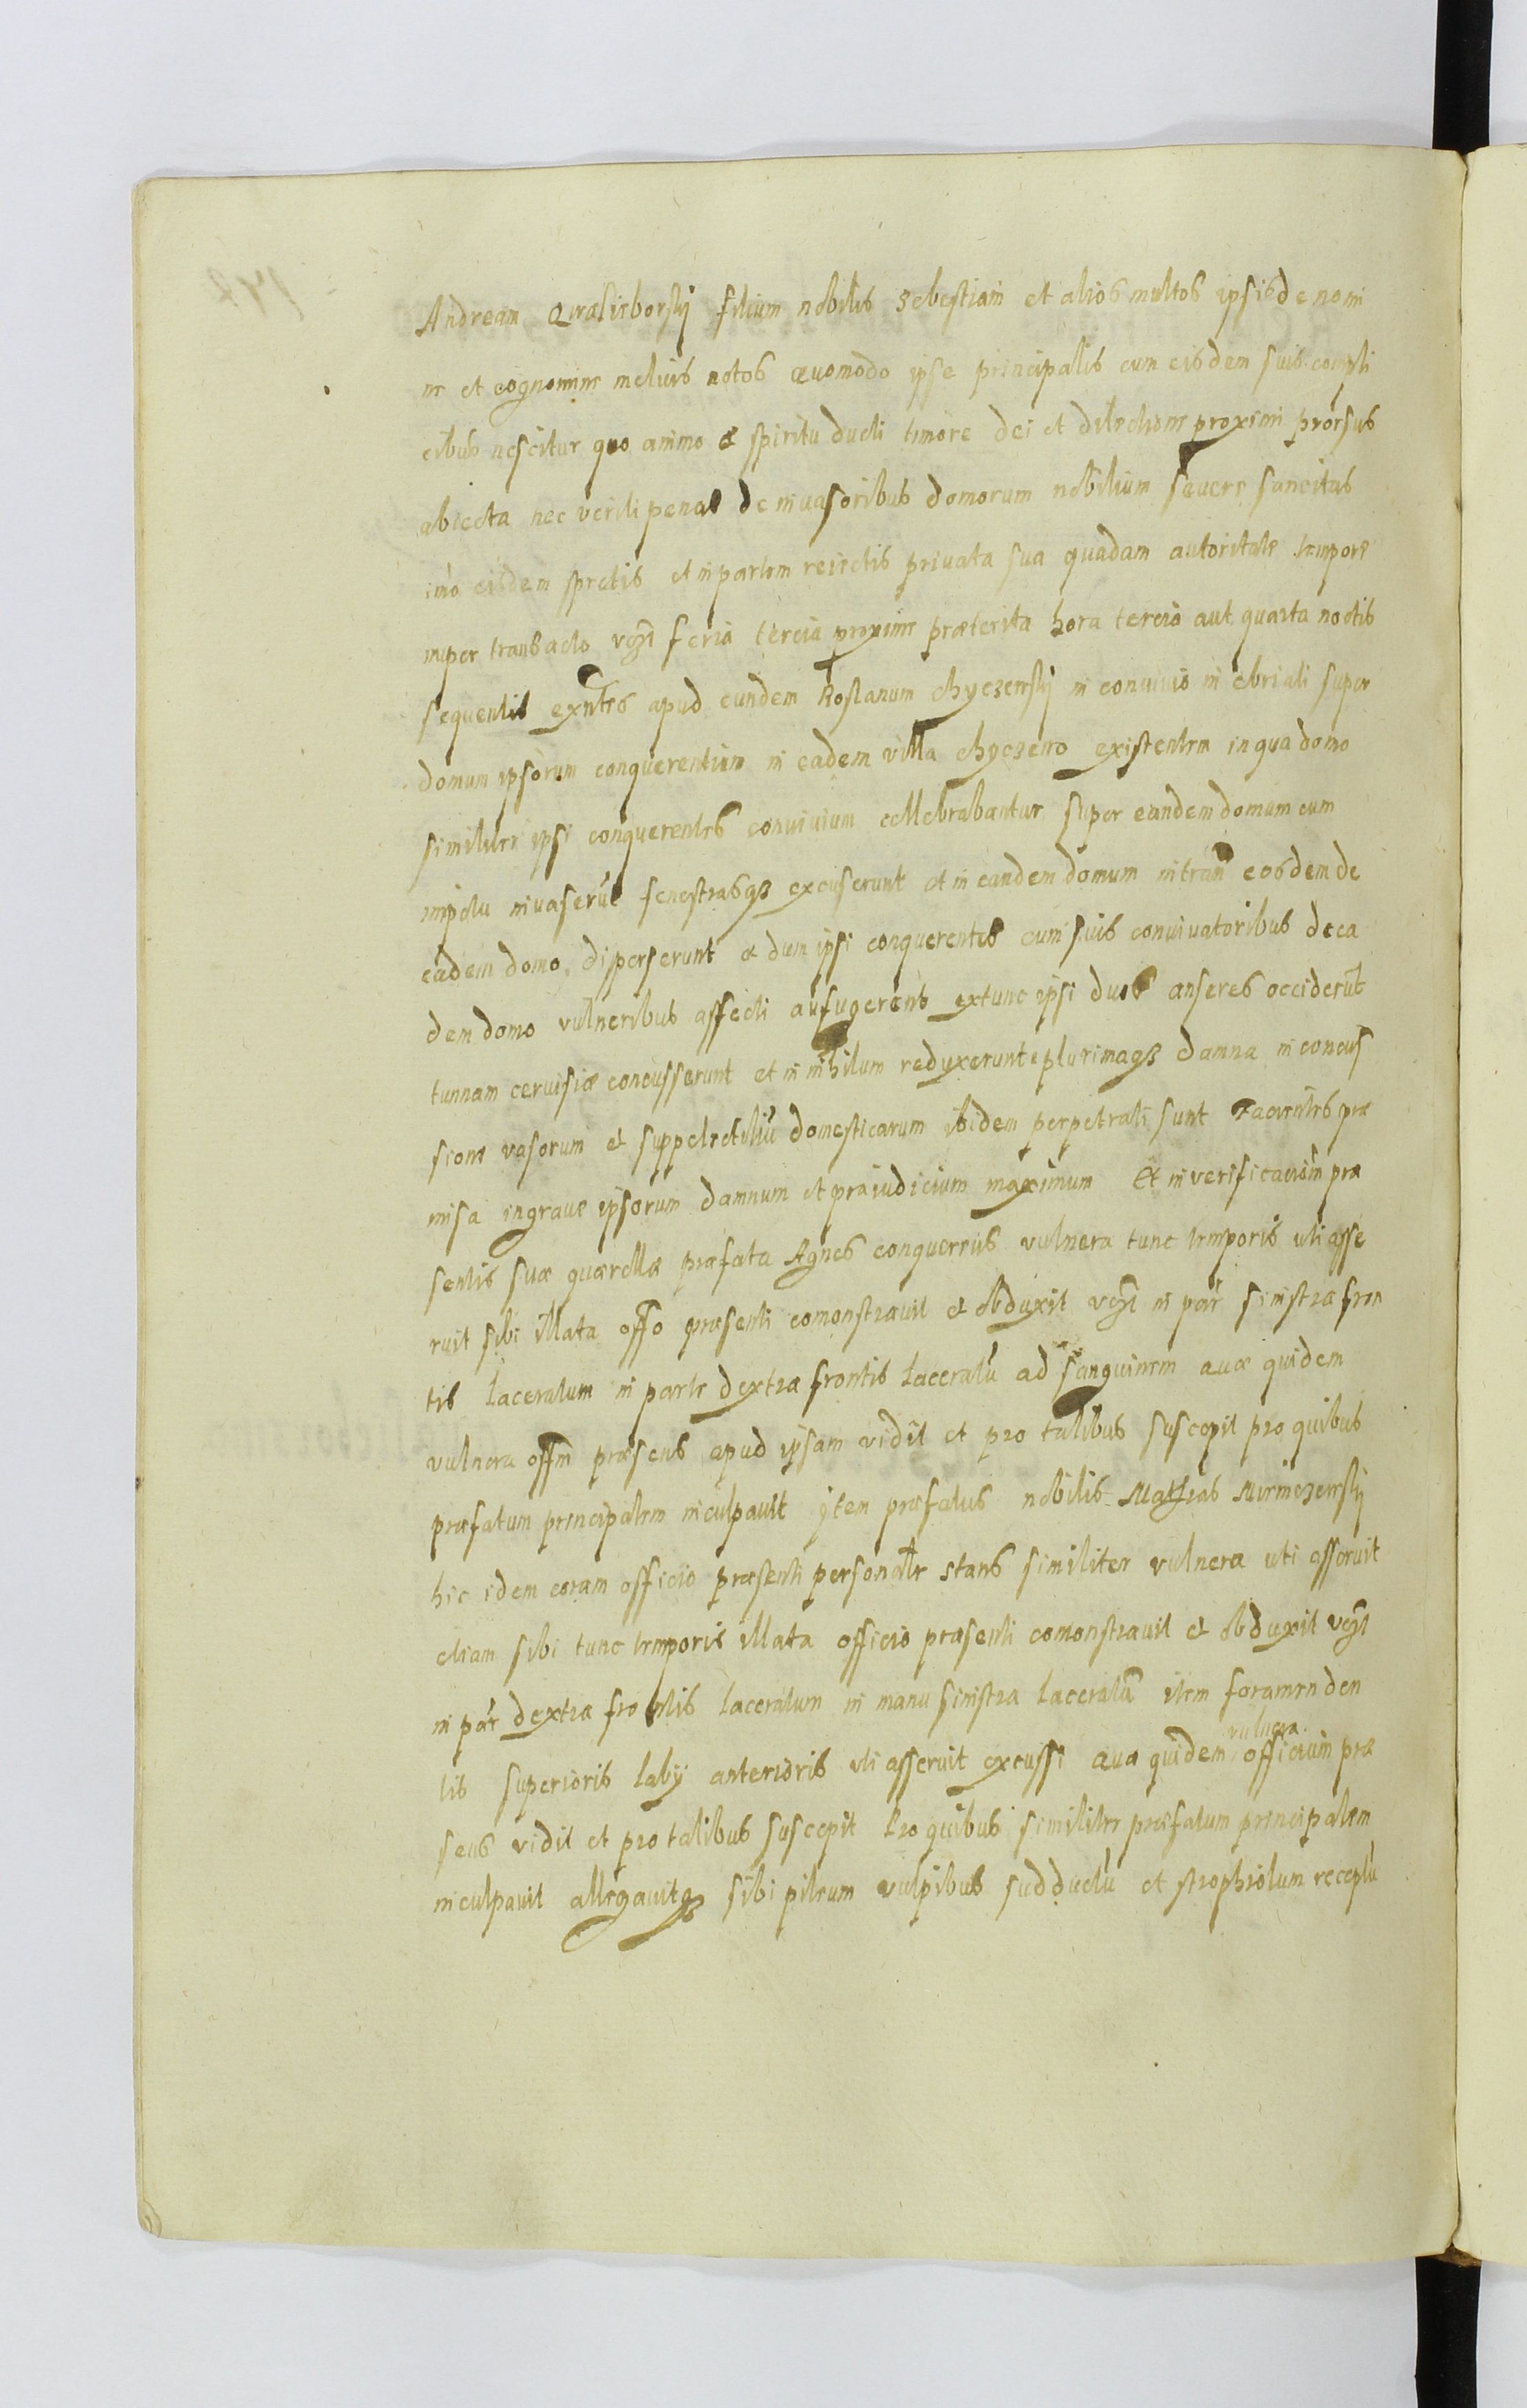 Andream Qvaslieborskÿ filium nobilis Sebestiani et alios multos ipsis de nomi
ne et cognomine melius notos quomodo ipse principalis cum eisdem suis compli
cibus nescitur quo animo & spiritu ducti timore dei et dilectione proximi prorsus
abiecta nec veriti penas de inuasoribus domorum nobilium seuere sancitas
imo eisdem spretis et in partem reiectis priuata sua quadam autoritate tempore
nuper transacto vczt feria tercia proxime præterita hora tercio aut quarta noctis
sequentis exntes apud eundem Roslanum chyczenskÿ in conuiuio inebriati super
domum ipsorum conquerentium in eadem villa chyczeno existentem in qua domo
similiter ipsi conquerentes conuiuium cellebrabantur super eandem domum cum
impetu inuaserūt fenestrasqz excuserunt et in eandem domum intran eosdem de
eadem domo disperserunt & dum ipsi conquerentes cum suis conuiuatoribus de ea
dem domo vulneribus affecti aufugerant extunc ipsi duos anseres occiderūt
tunnam ceruisiæ concusserunt et in nihilum reduxerunt plurimaqz damna in concus
sione vasorum et suppelectiliū domesticarum ibidem perpetrati sunt Facientes præ
misa in graue ipsorum damnum et præiudicium maximum Et in verificationem præ
sentis suæ quærellæ præfata Agnes conquerens vulnera tunc temporis uti asse
ruit sibi illata offo præsenti comonstrauit et obduxit vczt in par sinistra fron
tis laceratum in parte dextra frontis laceratū ad sanguinem quæ quidem
vulnera offm præsens apud ipsam vidit et pro talibus suscepit pro quibus
præfatum principalem inculpauit ytem præfatus nobilis Mathias Mirmczenskÿ
hic idem coram officio præsenti personalr stans similiter vulnera uti asseruit
etiam sibi tunc temporis illata officio præsenti comonstrauit et obduxit vczt
in par dextra frontis laceratum in manu sinistra laceratū item foramen den
tis superioris labÿ anterioris uti asseruit excussi qua quidem vulnera officium præ
sens vidit et pro talibus suscepit Pro quibus similiter præfatum principalem
inculpauit allegauitqz sibi pileum vulpibus sudductū et strophiolum receptū